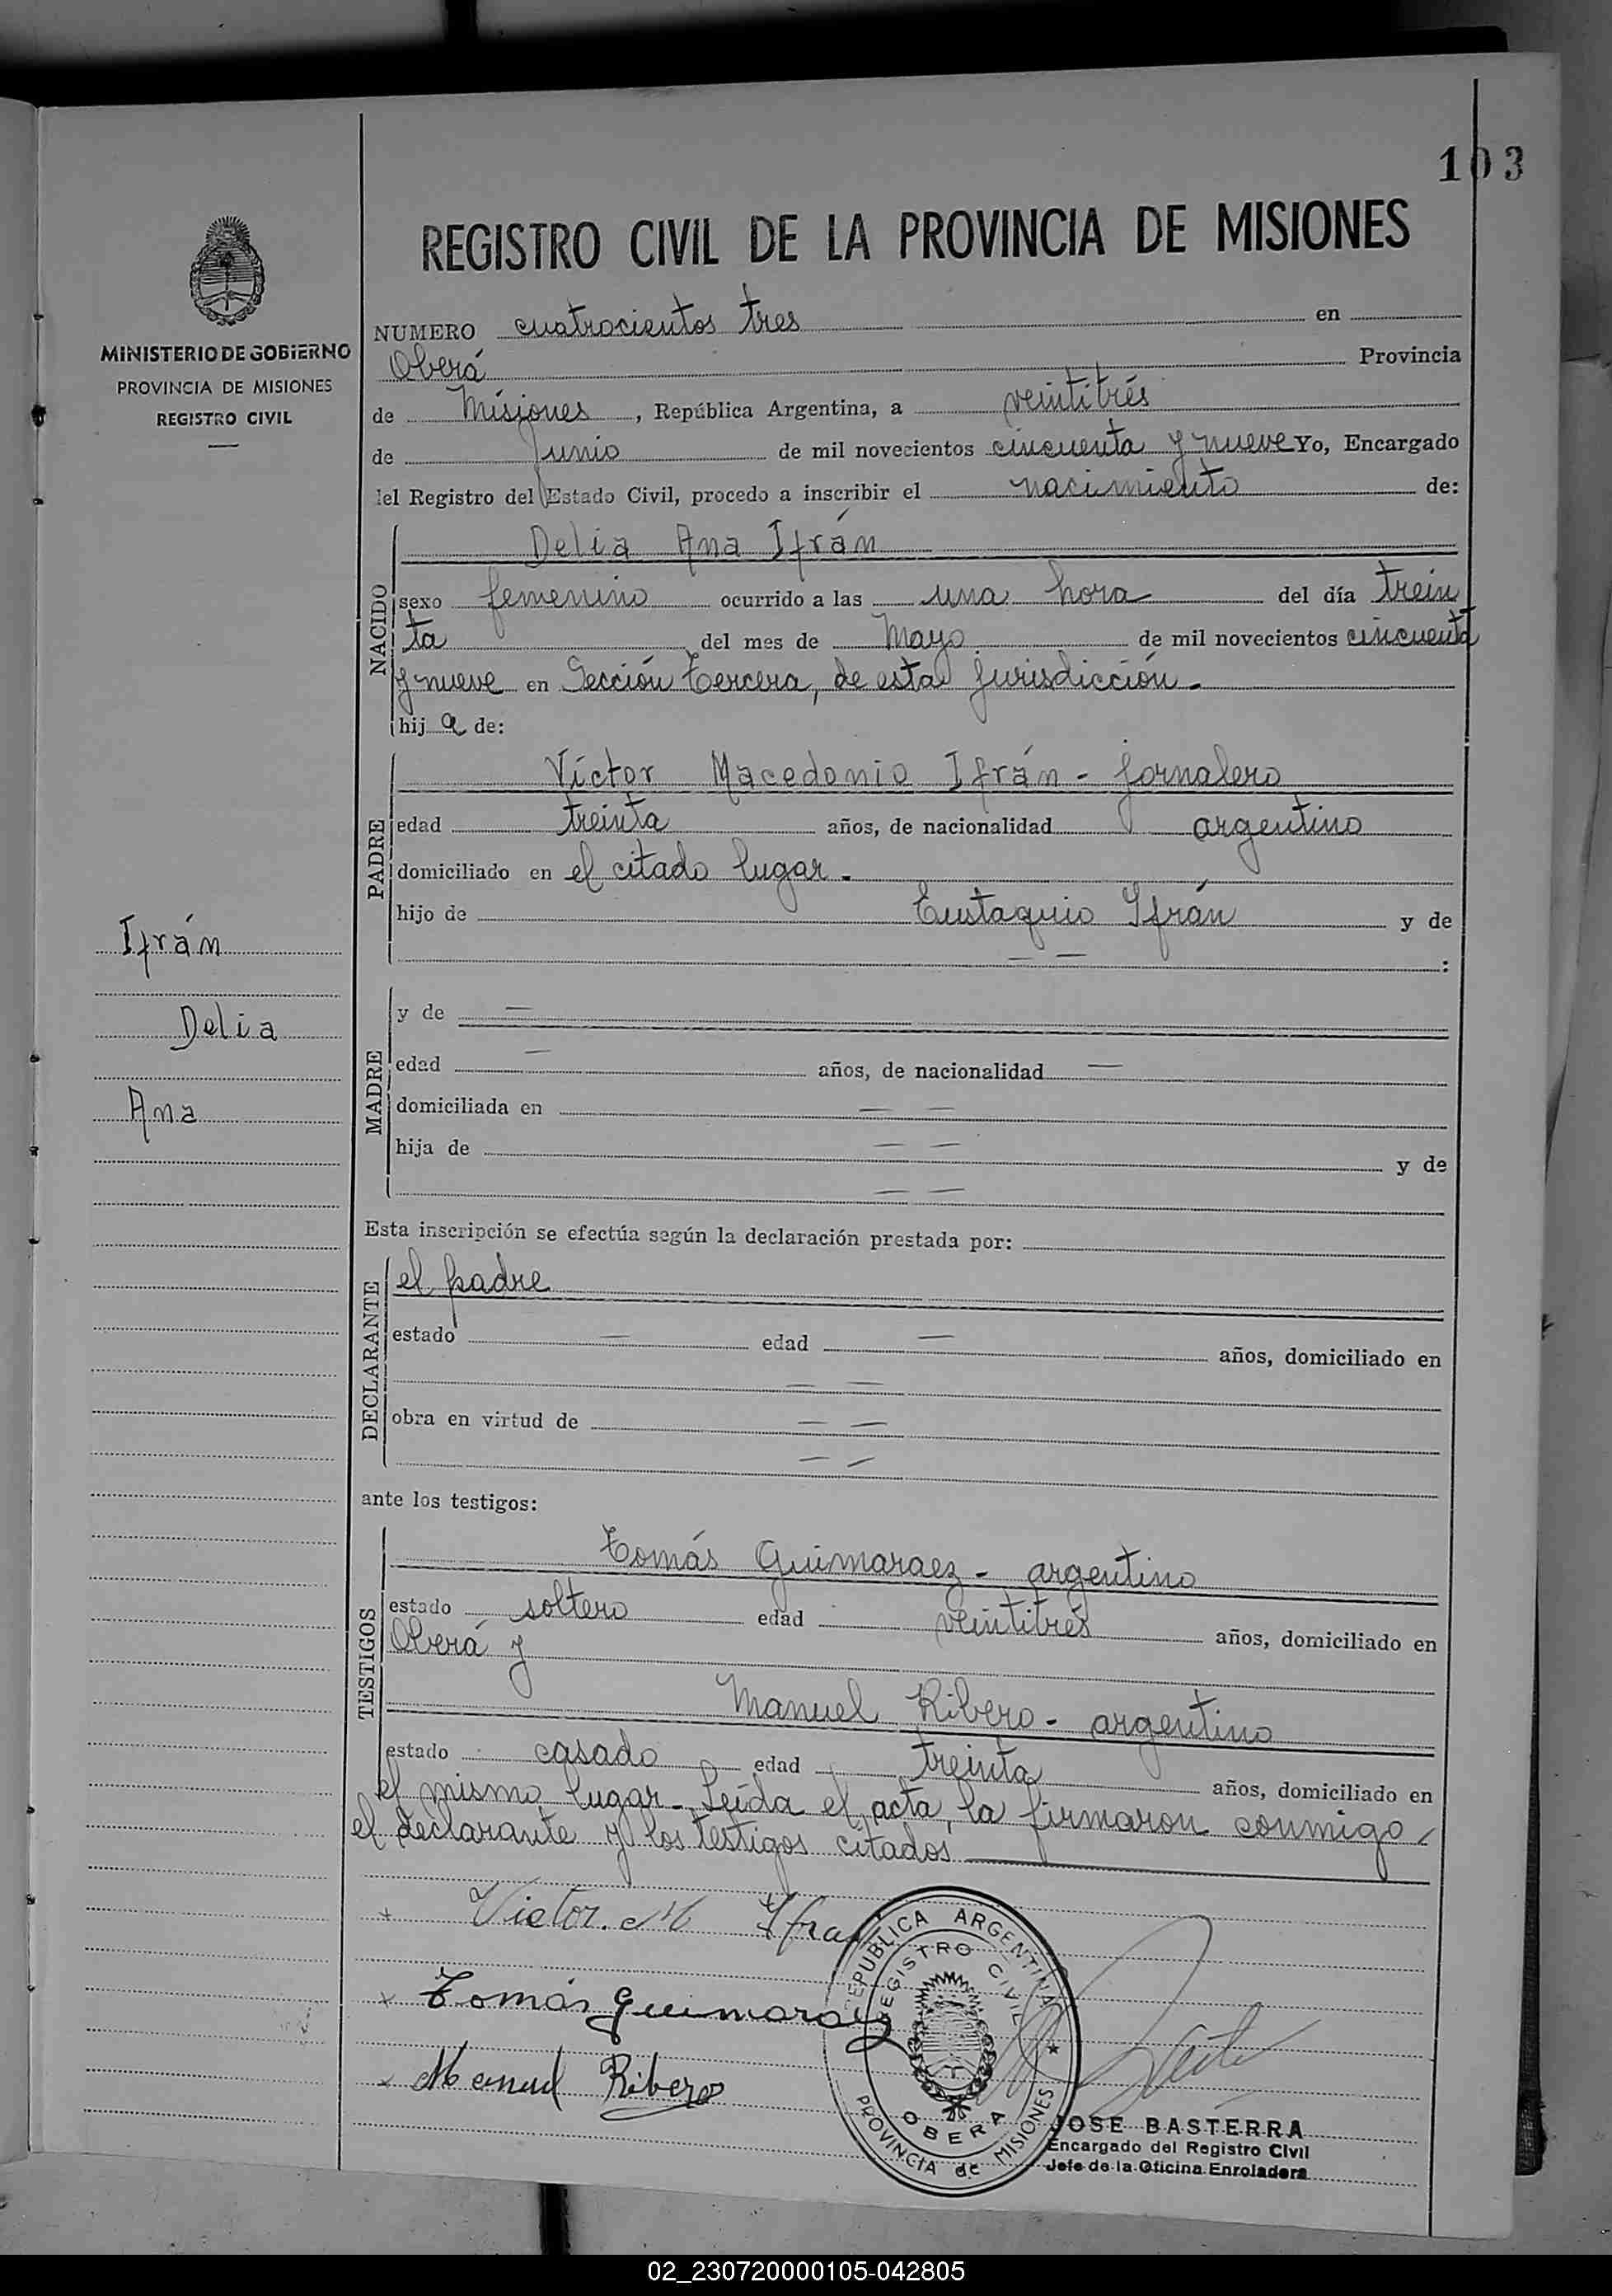 103
REGISTRO CIVIL DE LA PROVINCIA DE MISIONES
MINISTERIO DE GOBIERNO
PROVINCIA DE MISIONES
REGISTRO CIVIL
NUMERO cuatrocientos tres en
Oberá Provincia
de Misiones, República Argentina, a veintitrés
de Junio de mil novecientos cincuenta y nueve Yo, Encargado
del Registro del Estado Civil, procedo a inscribir el nacimiento de:
NACIDO
Delia Ana Ifrán
sexo femenino ocurrido a las una hora del día trein
ta del mes de Mayo de mil novecientos cincuenta
y nueve en Sección Tercera, de esta jurisdicción.
hija de:
PADRE
Víctor Macedonio Ifrán - jornalero
edad treinta años, de nacionalidad argentino
domiciliado en el citado lugar.
hijo de Eustaquio Ifrán y de
— — :
Ifrán
Delia
Ana
MADRE
y de —
edad — años, de nacionalidad —
domiciliada en — —
hija de — — y de
— —
Esta inscripción se efectúa según la declaración prestada por:
DECLARANTE
el padre
estado — edad — años, domiciliado en
— —
obra en virtud de — —
— —
ante los testigos:
TESTIGOS
Tomás Guimaraez - argentino
estado soltero edad veintitrés años, domiciliado en
Oberá y
Manuel Ribero - argentino
estado casado edad treinta años, domiciliado en
el mismo lugar - Leída el acta, la firmaron conmigo,
el declarante y los testigos citados
Victor. M Ifran
Tomás Guimaraez
Manuel Ribero
REPUBLICA ARGENTINA
REGISTRO CIVIL
OBERA
PROVINCIA de MISIONES
JOSE BASTERRA
Encargado del Registro Civil
Jefe de la Oficina Enroladora
02_230720000105-042805